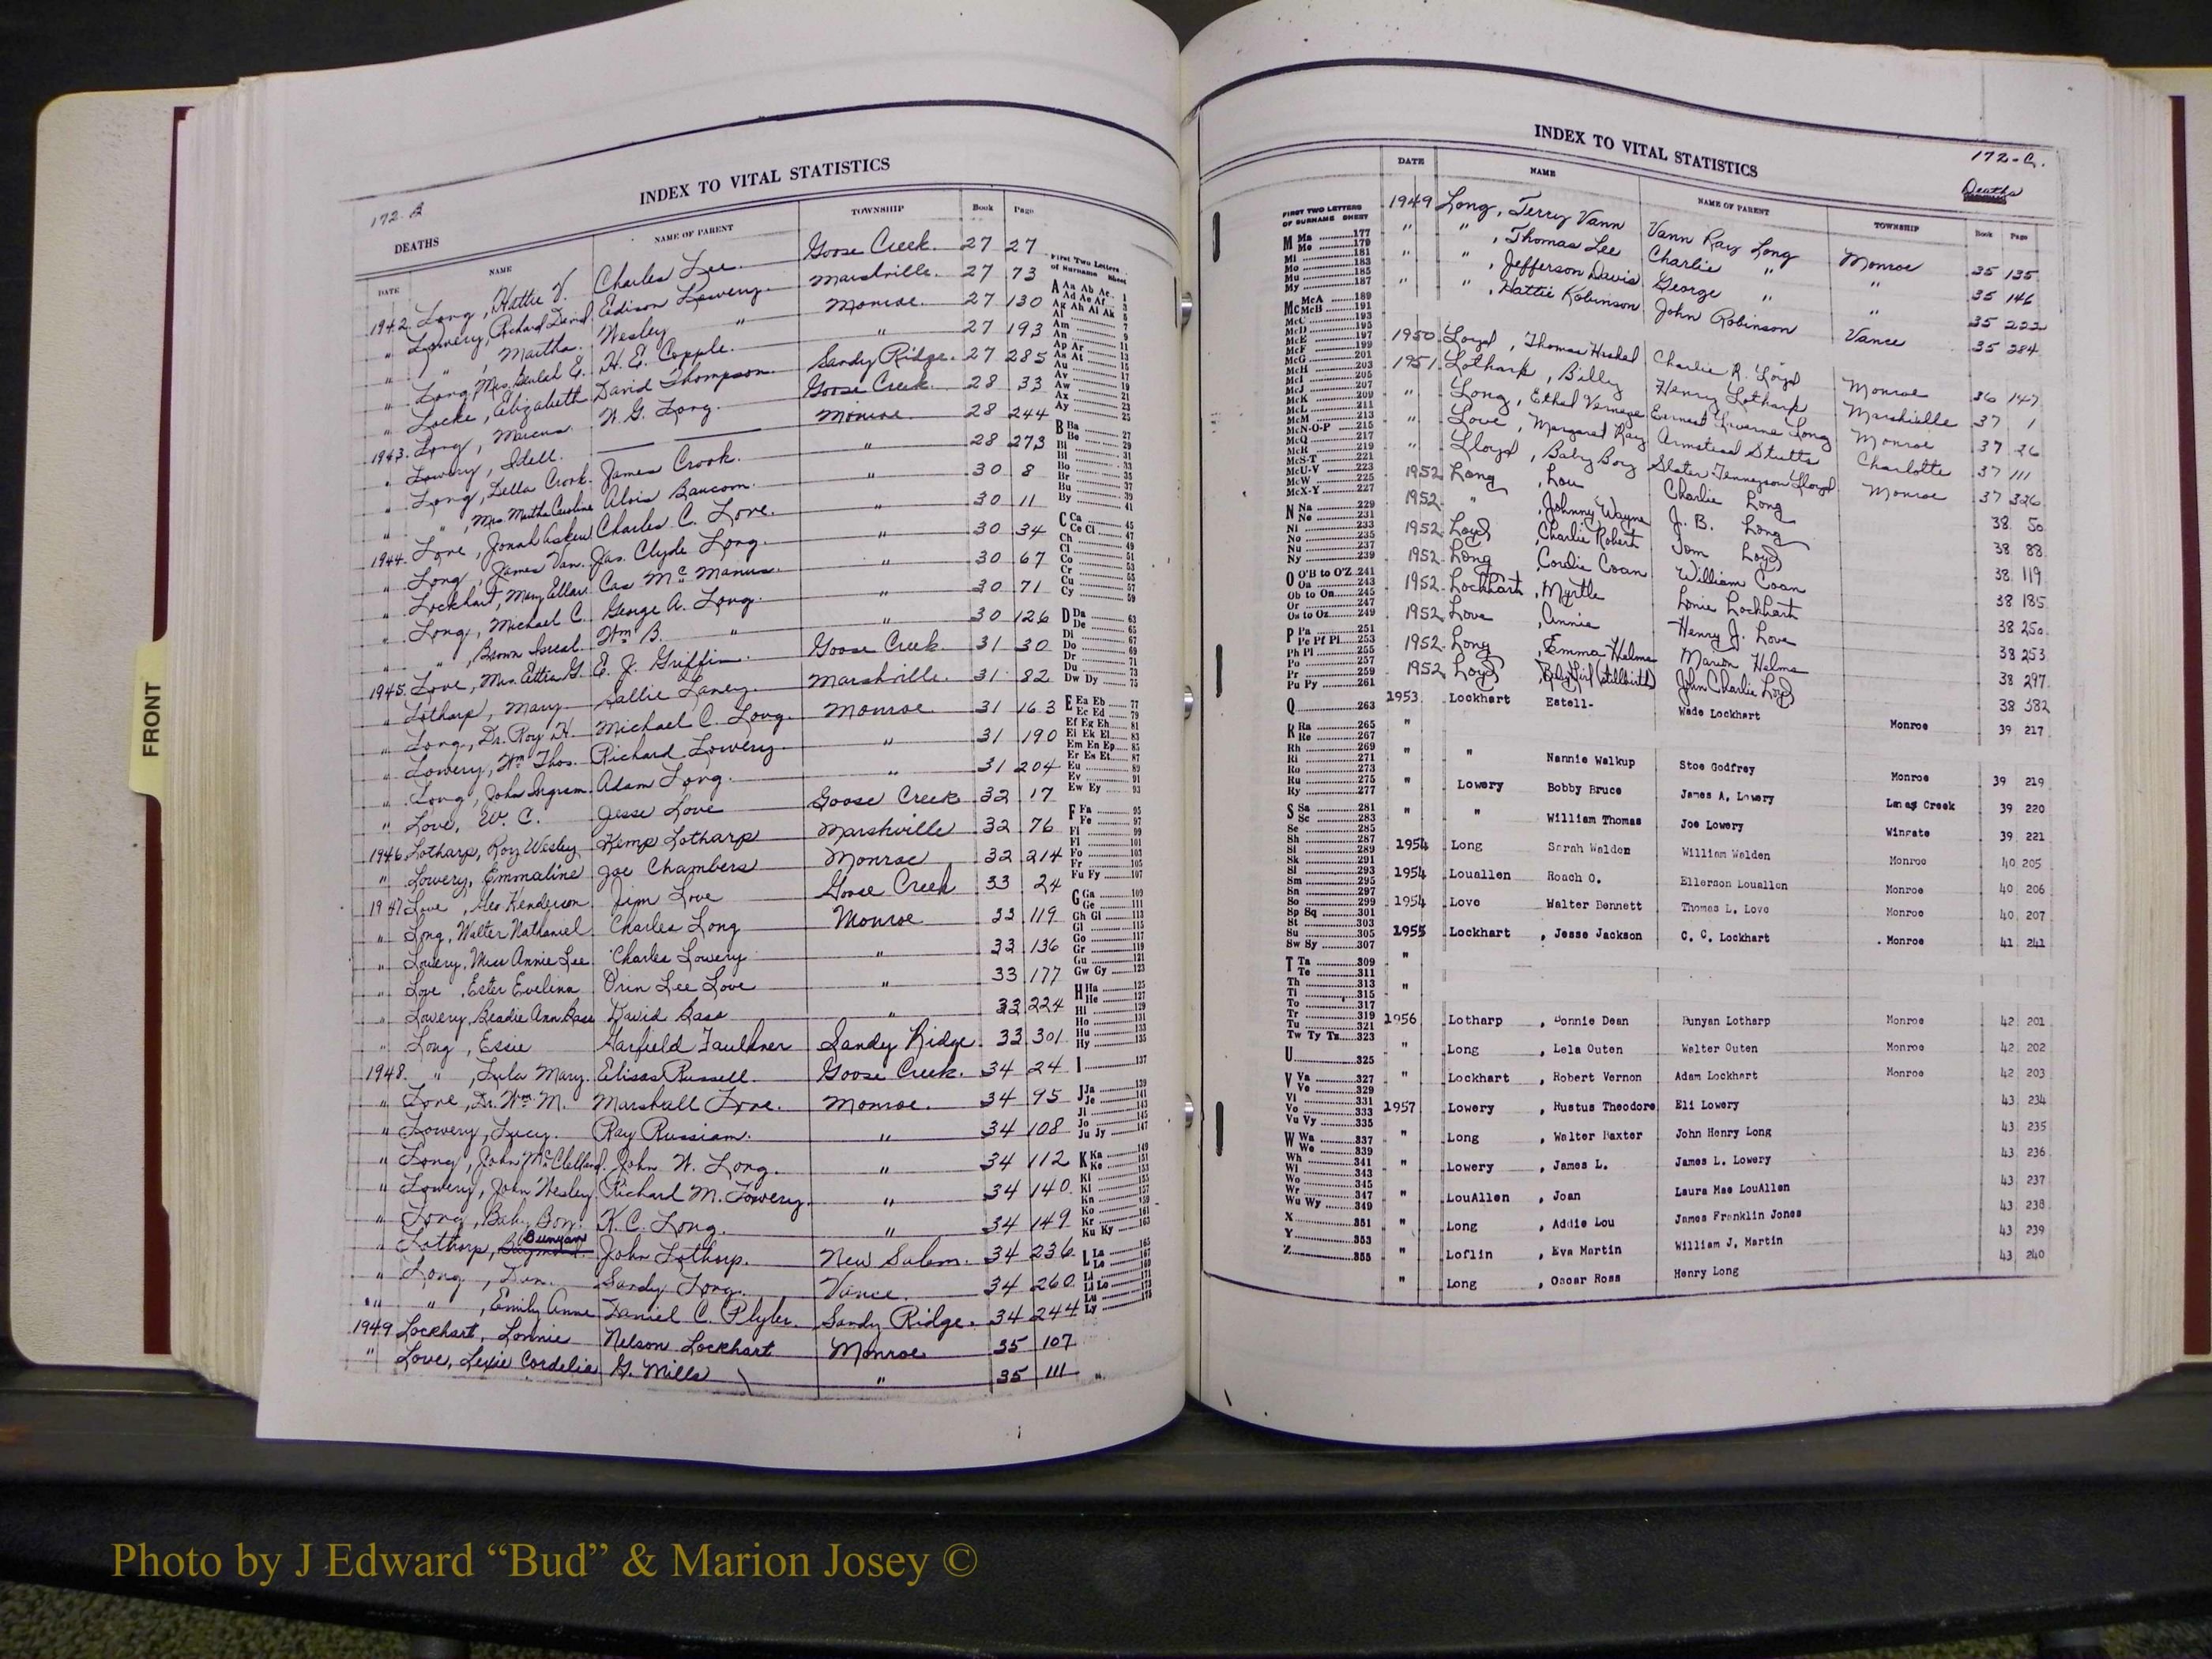 172-B
INDEX TO VITAL STATISTICS
DEATHS
DATE NAME NAME OF PARENT TOWNSHIP Book Page
1942. Long, Hattie V. Charles Lee. Goose Creek. 27 27
" Lowery, Richard David Edison Lowery. Marshville. 27 73
" " , Martha. Wesley " Monroe. 27 130
" Long, Mrs. Beulah E. H. E. Copple. " 27 193
" Locke, Elizabeth David Thompson. Sandy Ridge. 27 285
1943. Long, Marcus. W. G. Long. Goose Creek. 28 33
" Lowery, Idell. Monroe. 28 244
" Long, Della Crook. James Crook. " 28 273
" " , Mrs. Martha Caroline Alvis Baucom. " 30 8
1944. Love, Jonah Askew Charles C. Love. 30 11
" Long, James Van. Jas. Clyde Long. " 30 34
" Lockhart, Mary Ellar. Cas McManus. " 30 67
" Long, Michael C. George A. Long. " 30 71
" " , Brown Isreal. Wm B. " " 30 126
1945. Love, Mrs. Ettia G. E. J. Griffin. Goose Creek. 31 30
" Lotharp, Mary. Sallie Laney. Marshville. 31 82
" Long, Dr. Roy H. Michael C. Long. Monroe 31 163
" Lowery, Wm Thos. Richard Lowery. " 31 190
" Long, John Ingram. Adam Long. " 31 204
" Love, W. C. Jesse Love Goose Creek 32 17
1946 Lotharp, Roy Wesley Kemp Lotharp Marshville 32 76
" Lowery, Emmaline Joe Chambers Monroe 32 214
1947 Love, Geo Henderson Jim Love Goose Creek 33 24
" Long, Walter Nathaniel Charles Long Monroe 33 119
" Lowery, Miss Annie Lee Charles Lowery " 33 136
" Love, Ester Evelina Orin Lee Love " 33 177
" Lowery, Beadie Ann Bass David Bass " 33 224
" Long, Essie Garfield Faulkner Sandy Ridge. 33 301
1948. " , Lula Mary. Elisas Russell. Goose Creek. 34 24
" Love, Dr. Wm. M. Marshall Love. Monroe. 34 95
" Lowery, Lucy. Ray Russiam. " 34 108
" Long, John McClelland. John W. Long. " 34 112
" Lowery, John Wesley Richard M. Lowery. " 34 140
" Long, Baby Boy. K. C. Long. " 34 149
" Lothorp, Bunyan John Lothorp. New Salem. 34 236
" Long, Dan. Sandy Long. Vance. 34 260
" " , Emily Anne Daniel C. Plyler. Sandy Ridge. 34 244
1949 Lockhart, Lonnie Nelson Lockhart Monroe 35 107
" Love, Lexie Cordelia G. Mills " 35 111
First Two Letters
of Surname Sheet
A Aa Ab Ac 1
Ad Ae Af 3
Ag Ah Ai Ak 5
Al 7
Am 9
An 11
Ap Ar 13
As At 15
Au 17
Av 19
Aw 21
Ax 23
Ay 25
B Ba 27
Be 29
Bi 31
Bl 33
Bo 35
Br 37
Bu 39
By 41
C Ca 45
Ce Ci 47
Ch 49
Cl 51
Co 53
Cr 55
Cu 57
Cy 59
D Da 63
De 65
Di 67
Do 69
Dr 71
Du 73
Dw Dy 75
E Ea Eb 77
Ec Ed 79
Ef Eg Eh 81
Ei Ek El 83
Em En Ep 85
Er Es Et 87
Eu 89
Ev 91
Ew Ey 93
F Fa 95
Fe 97
Fi 99
Fl 101
Fo 103
Fr 105
Fu Fy 107
G Ga 109
Ge 111
Gh Gi 113
Gl 115
Go 117
Gr 119
Gu 121
Gw Gy 123
H Ha 125
He 127
Hi 129
Ho 131
Hu 133
Hy 135
I 137
J Ja 139
Je 141
Ji 143
Jo 145
Ju Jy 147
K Ka 149
Ke 151
Ki 153
Kl 155
Kn 157
Ko 159
Kr 161
Ku Ky 163
L La 165
Le 167
Li 169
Ll Lo 171
Lu
Ly 173
INDEX TO VITAL STATISTICS
172-C.
Deaths
DATE NAME NAME OF PARENT TOWNSHIP Book Page
1949 Long, Terry Vann Vann Ray Long Monroe 35 135
" " , Thomas Lee Charlie " " 35 146
" " , Jefferson Davis George " " 35 222
" " , Hattie Robinson John Robinson Vance 35 284
1950 Loyd, Thomas Hershel Charlie R. Loyd Monroe 36 147
1951 Lotharp, Billy Henry Lotharp Marshville 37 1
" Long, Ethel Vernege Earnest Laverne Long Monroe 37 26
" Love, Margaret Ray Armstead Stutts Charlotte 37 111
" Lloyd, Baby Boy Slater Tennyson Lloyd Monroe 37 326
1952 Long , Lou Charlie Long 38 50
1952. " , Johnny Wayne J. B. Long 38 83
1952. Loyd , Charlie Robert Tom Loyd 38 119
1952. Long Cordie Coan William Coan 38 185
1952. Lockhart , Myrtle Lonie Lockhart 38 250
1952. Love , Annie Henry J. Love 38 253
1952. Long , Emma Helms Marion Helms 38 297
1952 Loyd , Baby Girl (stillbirth) John Charlie Loyd 38 382
1953 Lockhart Estell- Wade Lockhart Monroe 39 217
"
" " Nannie Walkup Stoe Godfrey Monroe 39 219
" Lowery Bobby Bruce James A. Lowery Lanes Creek 39 220
" " William Thomas Joe Lowery Wingate 39 221
1954 Long Sarah Walden William Walden Monroe 40 205
1954 Louallen Roach O. Ellerson Louallen Monroe 40 206
1954 Love Walter Bennett Thomas L. Love Monroe 40 207
1955 Lockhart , Jesse Jackson C. C. Lockhart Monroe 41 241
"
"
1956 Lotharp , Donnie Dean Bunyan Lotharp Monroe 42 201
" Long , Lela Outen Walter Outen Monroe 42 202
" Lockhart , Robert Vernon Adam Lockhart Monroe 42 203
1957 Lowery , Rustus Theodore Eli Lowery 43 234
" Long , Walter Baxter John Henry Long 43 235
" Lowery , James L. James L. Lowery 43 236
" LouAllen , Joan Laura Mae LouAllen 43 237
" Long , Addie Lou James Franklin Jones 43 238
" Loflin , Eva Martin William J. Martin 43 239
" Long , Oscar Ross Henry Long 43 240
FIRST TWO LETTERS
OF SURNAME SHEET
M Ma 177
Me 179
Mi 181
Mo 183
Mu 185
My 187
Mc McA 189
McB 191
McC 193
McD 195
McE 197
McF 199
McG 201
McH 203
McI 205
McJ 207
McK 209
McL 211
McM 213
McN-O-P 215
McQ 217
McR 219
McS-T 221
McU-V 223
McW 225
McX-Y 227
N Na 229
Ne 231
Ni 233
No 235
Nu 237
Ny 239
O O'B to O'Z 241
Oa 243
Ob to On 245
Or 247
Os to Oz 249
P Pa 251
Pe Pf Pi 253
Ph Pl 255
Po 257
Pr 259
Pu Py 261
Q 263
R Ra 265
Re 267
Rh 269
Ri 271
Ro 273
Ru 275
Ry 277
S Sa 281
Sc 283
Se 285
Sh 287
Si 289
Sk 291
Sl 293
Sm 295
Sn 297
So 299
Sp Sq 301
St 303
Su 305
Sw Sy 307
T Ta 309
Te 311
Th 313
Ti 315
To 317
Tr 319
Tu 321
Tw Ty Tz 323
U 325
V Va 327
Ve 329
Vi 331
Vo 333
Vu Vy 335
W Wa 337
We 339
Wh 341
Wi 343
Wo 345
Wr 347
Wu Wy 349
X 351
Y 353
Z 355
FRONT
Photo by J Edward “Bud” & Marion Josey ©